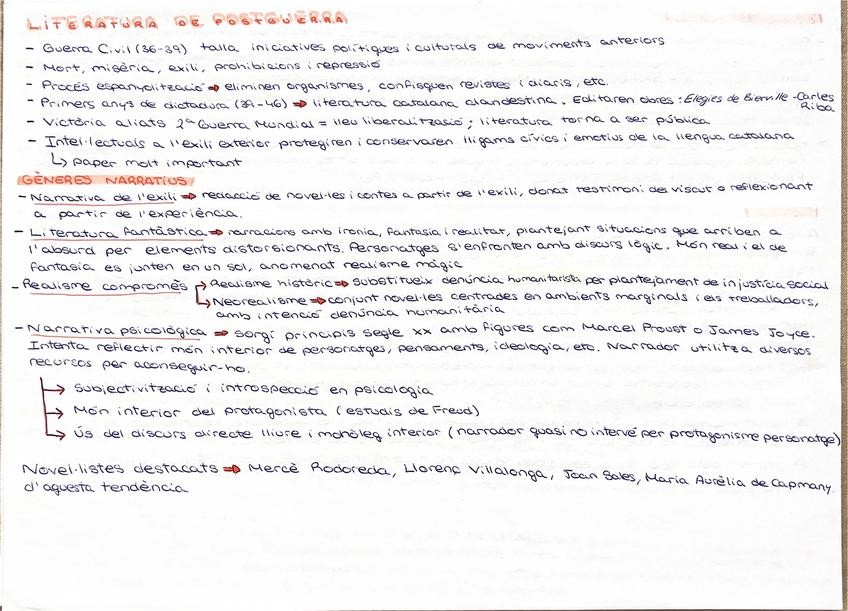 LITERATURA DE POSTGUERRA
- Guerra Civil (36-39) talla iniciatives polítiques i culturals de moviments anteriors
- Mort, misèria, exili, prohibicions i repressió
- Procés espanyolització ⇒ eliminen organismes, confisquen revistes i diaris, etc.
- Primers anys de dictadura (39-46) ⇒ literatura catalana clandestina. Editaren obres: Elegies de Bierville - Carles
Riba
- Victòria aliats 2ª Guerra Mundial = lleu liberalització; literatura torna a ser pública
- Intel·lectuals a l'exili exterior protegiren i conservaren lligams cívics i emotius de la llengua catalana
↳ paper molt important
GÈNERES NARRATIUS
- Narrativa de l'exili ⇒ redacció de novel·les i contes a partir de l'exili, donat testimoni des viscut o reflexionant
a partir de l'experiència.
- Literatura fantàstica ⇒ narracions amb ironia, fantasia i realitat, plantejant situacions que arriben a
l'absurd per elements distorsionants. Personatges s'enfronten amb discurs lògic. Món real i el de
fantasia es junten en un sol, anomenat realisme màgic
- Realisme compromès → Realisme històric ⇒ substitueix denúncia humanitarista per plantejament de injustícia social
↳ Neorealisme ⇒ conjunt novel·les centrades en ambients marginals i els treballadors,
amb intenció denúncia humanitària
- Narrativa psicològica ⇒ sorgí principis segle XX amb figures com Marcel Proust o James Joyce.
Intenta reflectir món interior de personatges, pensaments, ideologia, etc. Narrador utilitza diversos
recursos per aconseguir-ho.
→ Subjectivització i introspecció en psicologia
→ Món interior del protagonista (estudis de Freud)
→ Ús del discurs directe lliure i monòleg interior (narrador quasi no intervé per protagonisme personatge)
Novel·listes destacats ⇒ Mercè Rodoreda, Llorenç Villalonga, Joan Sales, Maria Aurèlia de Capmany.
d'aquesta tendència